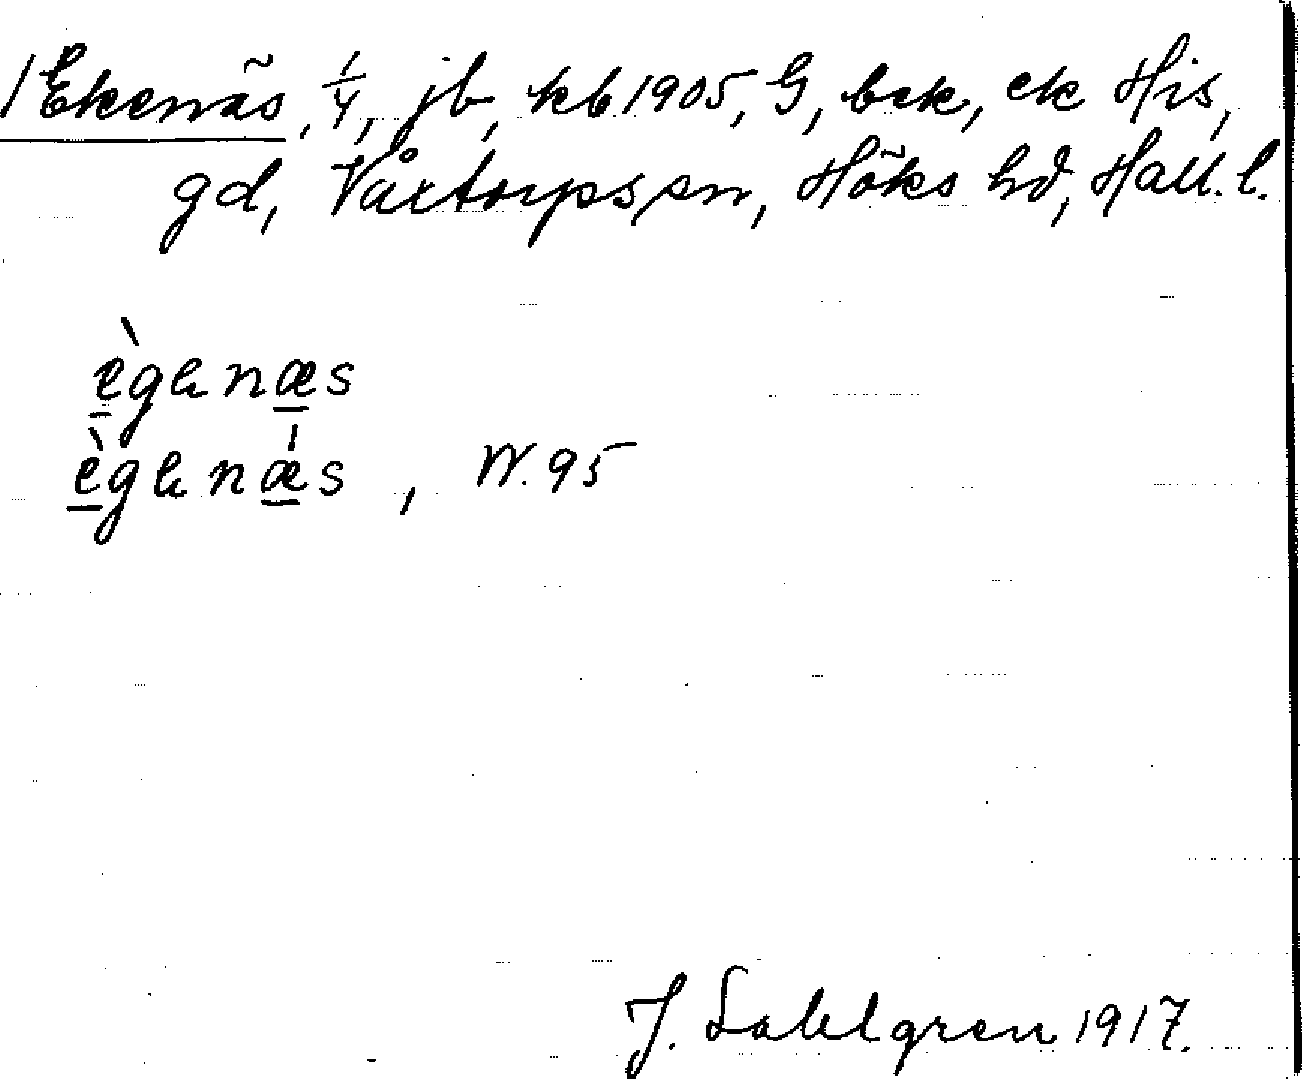 / Ekenäs, 1/4, jb, kb 1905, G, bck, ek His,
gd, Våxtorps sn, Höks hd, Hall. l.
ègənæs
ègənæs, W. 95
J. Sahlgren 1917.